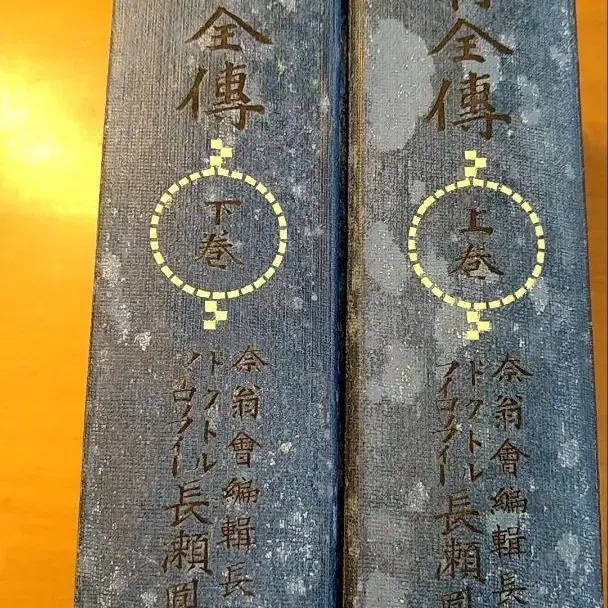 全傳
上巻
奈翁會編輯長
ドクトル
フイロソフイー
長瀬
全傳
下巻
奈翁會編輯長
ドクトル
フイロソフイー
長瀬